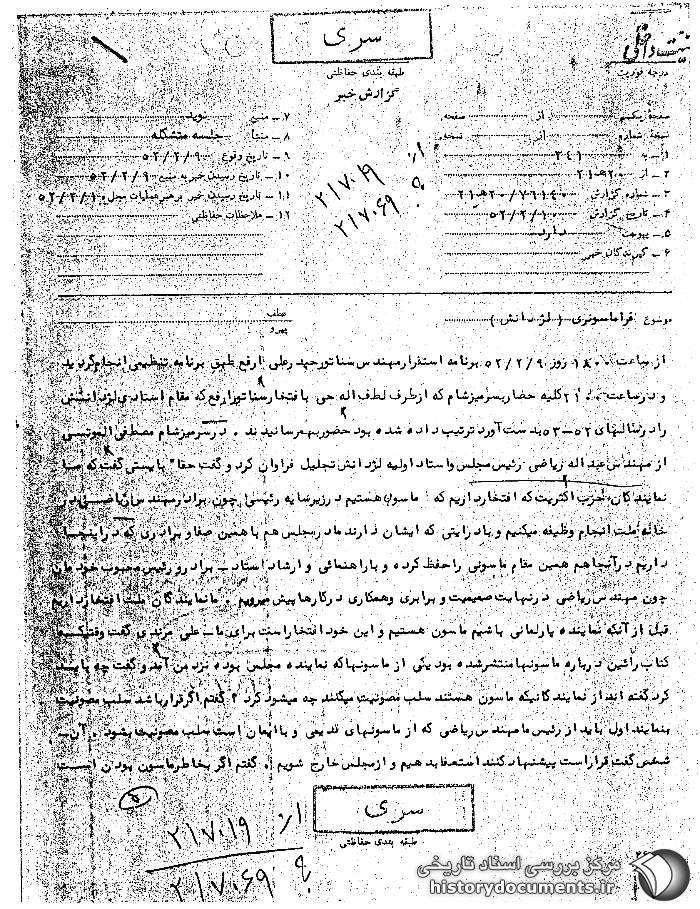 سری
طبقه بندی حفاظتی
گزارش خبر
درجه فوریت
صفحه یکم از صفحه
نسخه شماره از نسخه
۱ـ به ۳۴۱
۲ـ از ۲۰هـ۲۱
۳ـ شماره گزارش
۴ـ تاریخ گزارش ۵۲/۲/۱۰
۵ـ پیوست دارد
۶ـ گیرندگان خبر
۷ـ منبع نوید
۸ـ منشأ جلسه متشکله
۹ـ تاریخ وقوع ۵۲/۲/۹
۱۰ـ تاریخ رسیدن خبر به منبع ۵۲/۲/۹
۱۱ـ تاریخ رسیدن خبر برهبر عملیات محل ۵۲/۲/۱۰
۱۲ـ ملاحظات حفاظتی
از ۲۱۷۰۱۹
به ۲۱۷۰۶۹
موضوع فراماسونری (لژ دانش)
عطف
پیرو
از ساعت ۱۸۰۰ روز ۵۲/۲/۹ برنامه استقرار مهندس سناتور حیدرعلی ارفع طبق برنامه تنظیمی انجام گردید
و در ساعت ۲۱۰۰ کلیه حضار بسرمیز شام که از طرف لطف اله حی بافتخار سناتور ارفع که مقام استادی لژ دانش
را در سالهای ۵۲ـ۵۳ بدست آورد ترتیب داده شده بود حضور بهم رسانیدند . در سرمیز شام مصطفی الموتی
از مهندس عبداله ریاضی رئیس مجلس و استاد اولیه لژ دانش تجلیل فراوان کرد و گفت حقا" بایستی گفت که ما
نمایندگان حزب اکثریت که افتخار داریم که ماسون هستیم در زیر سایه رئیسی چون برادر مهندس ریاضی در
خانه ملت انجام وظیفه میکنیم و با درایتی که ایشان دارند ما در مجلس هم با همین صفا و برادری که در اینجا
داریم در آنجا هم همین مقام ماسونی را حفظ کرده و با راهنمائی و ارشاد استاد ـ برادر و رئیس محبوب خودمان
چون مهندس ریاضی در نهایت صمیمیت و برابری و همکاری در کارها پیش میرویم . ما نمایندگان ملت افتخار داریم
قبل از آنکه نماینده پارلمانی باشیم ماسون هستیم و این خود افتخار است برای ما ـ علی مرندی گفت وقتیکه
کتاب رائین درباره ماسونها منتشر شده بود یکی از ماسونها که نماینده مجلس بوده نزد من آمد و گفت چه باید
کرد گفته اند از نمایندگانیکه ماسون هستند سلب مصونیت میکنند چه میشود کرد ؟ گفتم اگر قرار باشد سلب مصونیت
بنمایند اول باید از رئیس ما مهندس ریاضی که از ماسونهای قدیمی و با ایمان است سلب مصونیت بشود . آن
شخص گفت قرار است پیشنهاد کنند استعفا بدهیم و از مجلس خارج شویم . گفتم اگر بخاطر ماسون بودن است
سری
طبقه بندی حفاظتی
از ۲۱۷۰۱۹
به ۲۱۷۰۶۹
مرکز بررسی اسناد تاریخی
historydocuments.ir